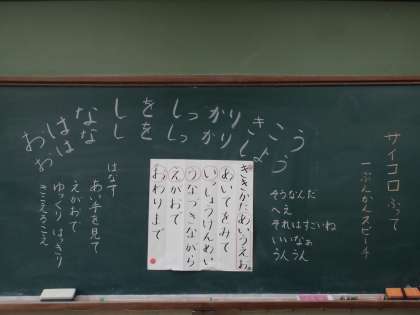 サイコロふって
一ぷんかんスピーチ
おはなしをしっかりきこう
おはなしをしっかりしよう
そうなんだ
へえ
それはすごいね
いいなぁ
うんうん
ききかたあいうえお
あいてをみて
いっしょうけんめい
うなづきながら
えがおで
おわりまで
はなす
あい手を見て
えがおで
ゆっくりはっきり
きこえるこえ